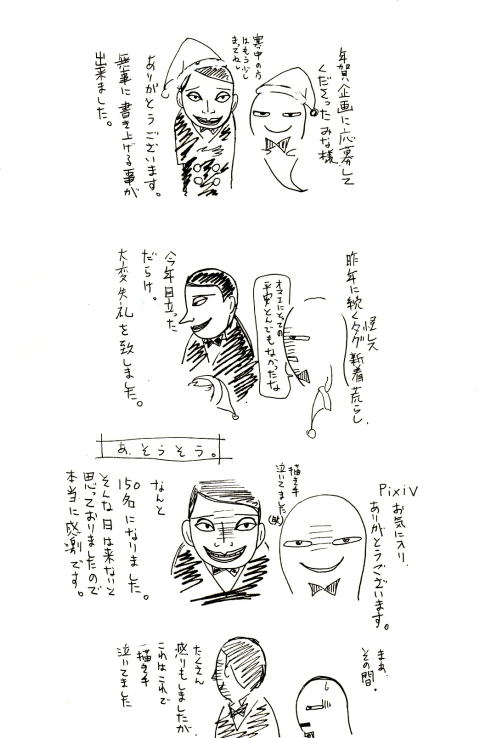 年賀企画に応募して
くださったみな様、
寒中の方
はもう少し
まってねん
ありがとうございます。
無事に書き上げる事が
出来ました。
昨年に続く
怪レス
タグ新着荒らし、
オマエにとっての
平史とんでもなかったな
今年目立った
だらけ。
大変失礼を致しました。
あ、そうそう。
Pixiv
お気に入り、
ありがとうございます。
描き手
泣いてました(余)
なんと
150名になりました。
そんな日は来ないと
思っておりましたので
本当に感激です。
まぁ、
その間、
たくさん
減りもしましたが、
これはこれで
描き手
泣いてました